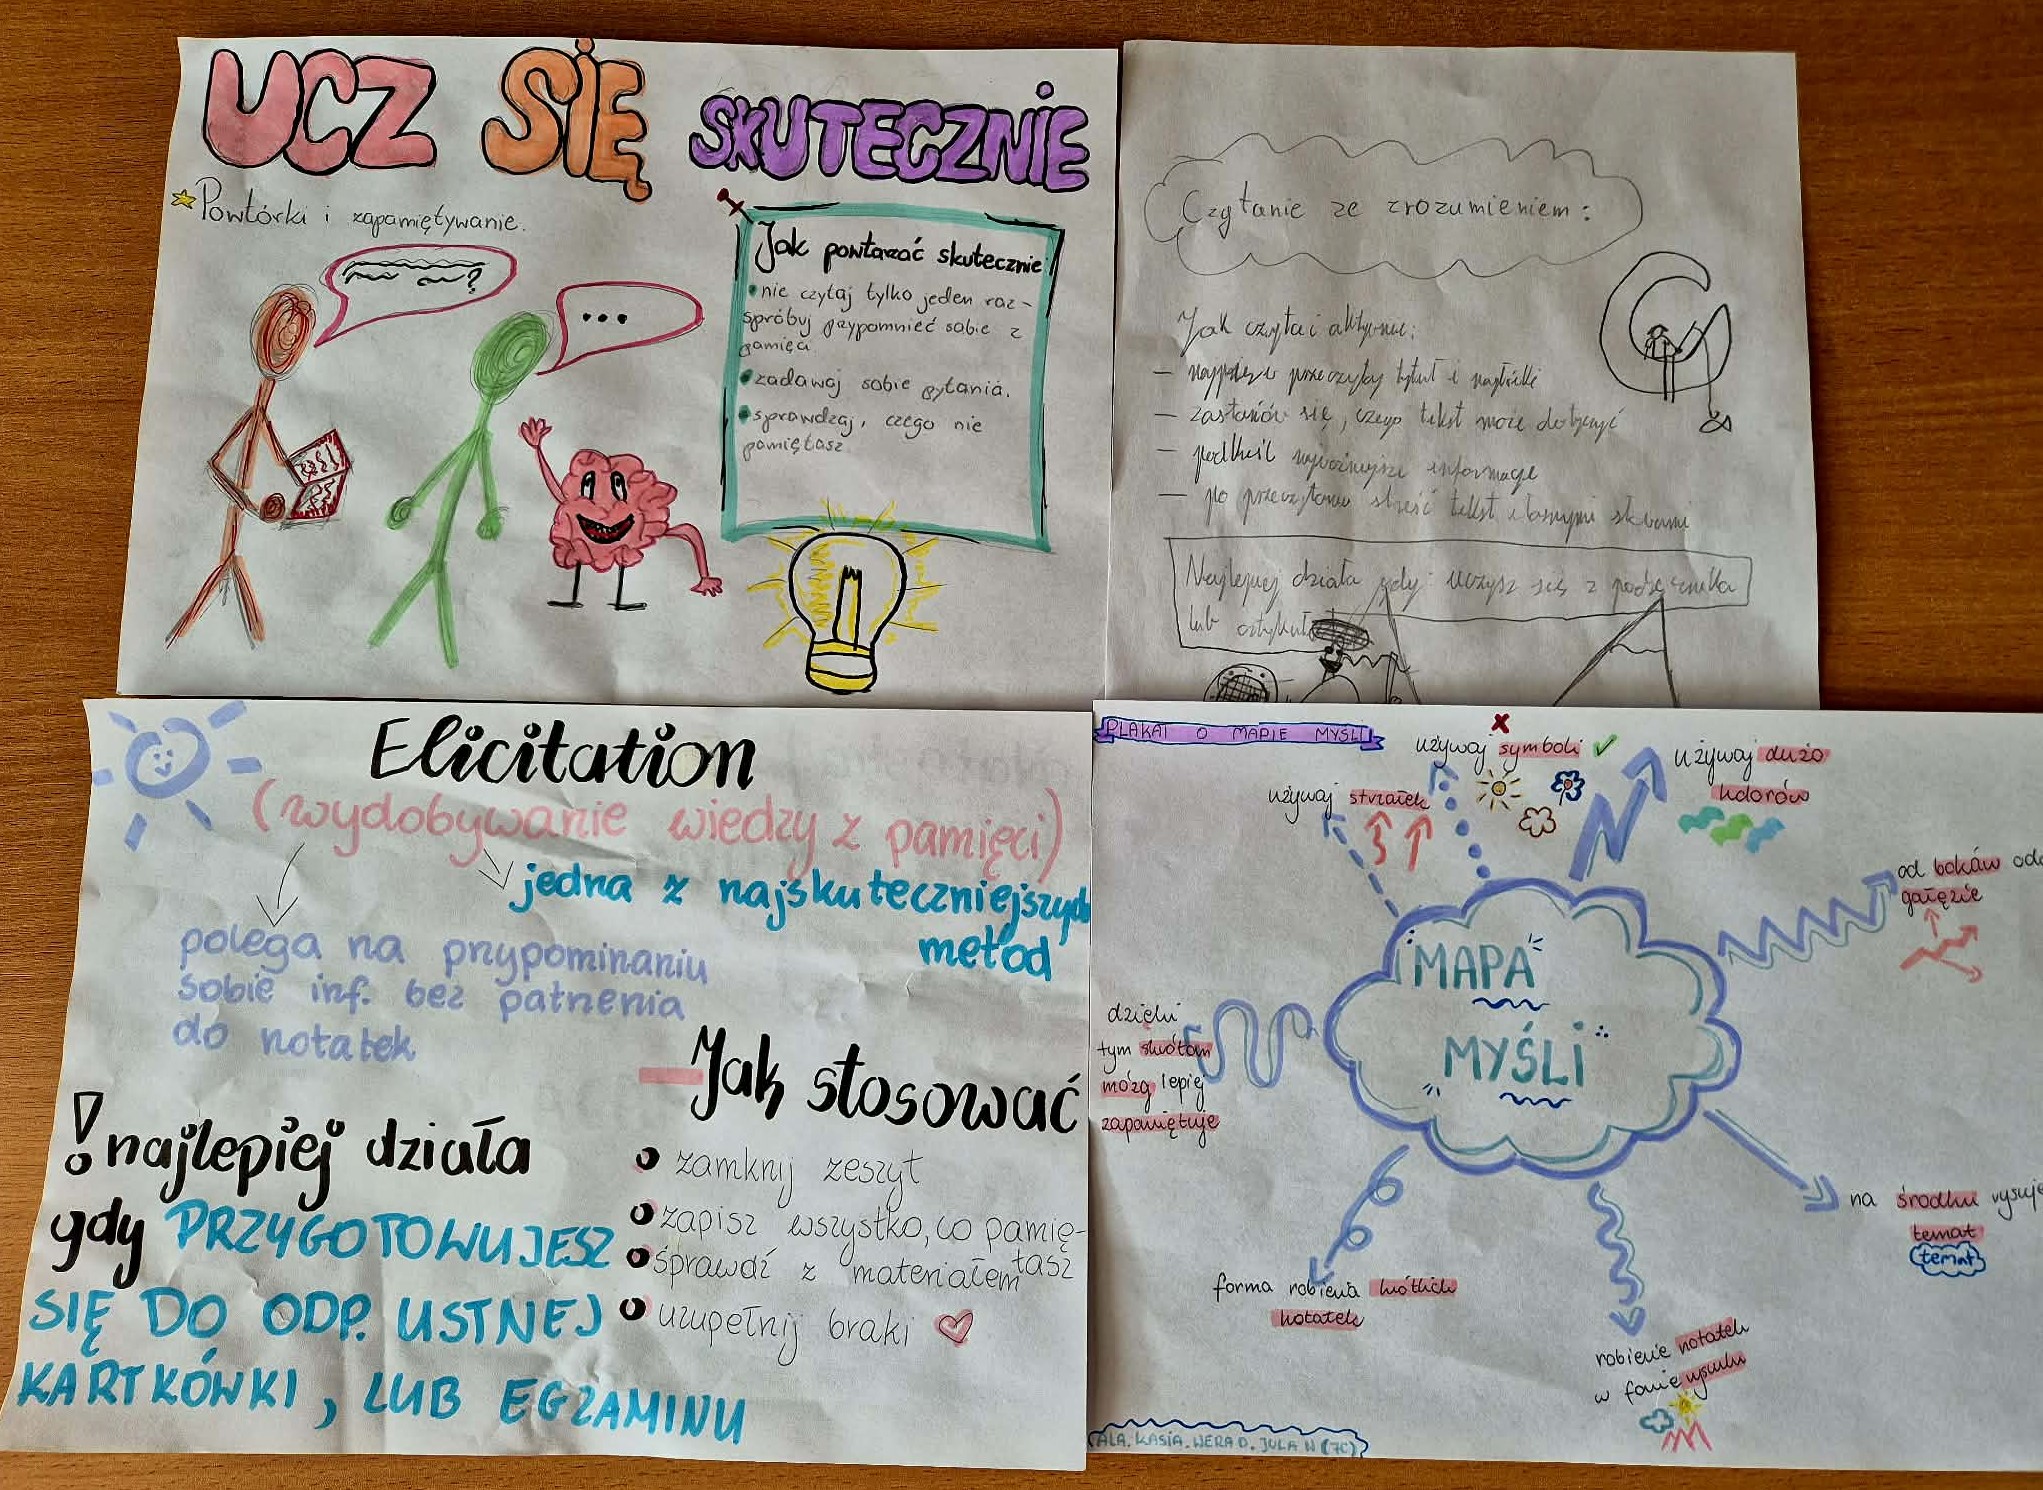 UCZ SIĘ SKUTECZNIE
Powtórki i zapamiętywanie.
?
...
Jak powtarzać skutecznie:
nie czytaj tylko jeden raz -
spróbuj przypomnieć sobie z
pamięci.
zadawaj sobie pytania.
sprawdzaj, czego nie
pamiętasz.
Czytanie ze zrozumieniem:
Jak czytać aktywnie:
- najpierw przeczytaj tytuł i nagłówki
- zastanów się, czego tekst może dotyczyć
- podkreśl najważniejsze informacje
- po przeczytaniu streść tekst własnymi słowami
Najlepiej działa gdy uczysz się z podręcznika
lub artykułu
Elicitation
(wydobywanie wiedzy z pamięci)
jedna z najskuteczniejszych
metod
polega na przypominaniu
sobie inf. bez patrzenia
do notatek
! najlepiej działa
gdy PRZYGOTOWUJESZ
SIĘ DO ODP. USTNEJ
KARTKÓWKI, LUB EGZAMINU
Jak stosować
zamknij zeszyt
zapisz wszystko, co pamię-
tasz
sprawdź z materiałem
uzupełnij braki
PLAKAT O MAPIE MYŚLI
używaj symboli
używaj strzałek
używaj dużo
kolorów
od boków
gałęzie
MAPA
MYŚLI
dzięki
tym skrótom
mózg lepiej
zapamiętuje
na środku rysuje
temat
temat
forma robienia krótkich
notatek
robienie notatek
w formie rysunku
ALA, KASIA, WERA D, JULA W (7C)